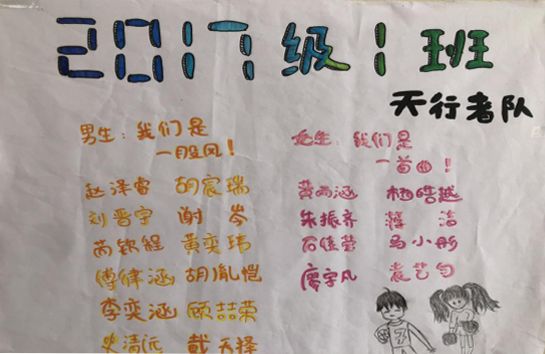 2017级1班
天行者队
男生：我们是
一股风！
赵泽睿 胡宸瑞
刘晋宇 谢岑
芮钦程 黄奕玮
傅律涵 胡胤恺
李奕涵 顾喆荣
史清远 戴天择
女生：我们是
一首曲！
黄雨涵 杨皓越
朱振齐 蒋洁
石佳莹 马小彤
廖宇凡 袁艺匀
7